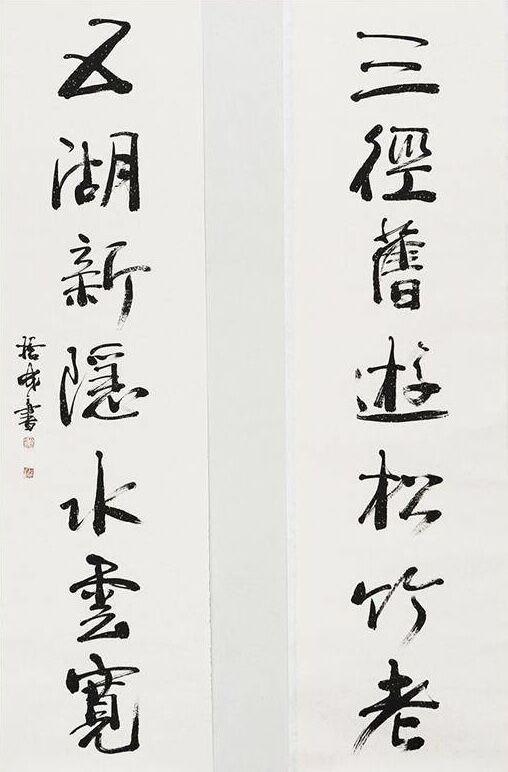 三徑舊遊松竹老
五湖新隱水雲寬
振成書